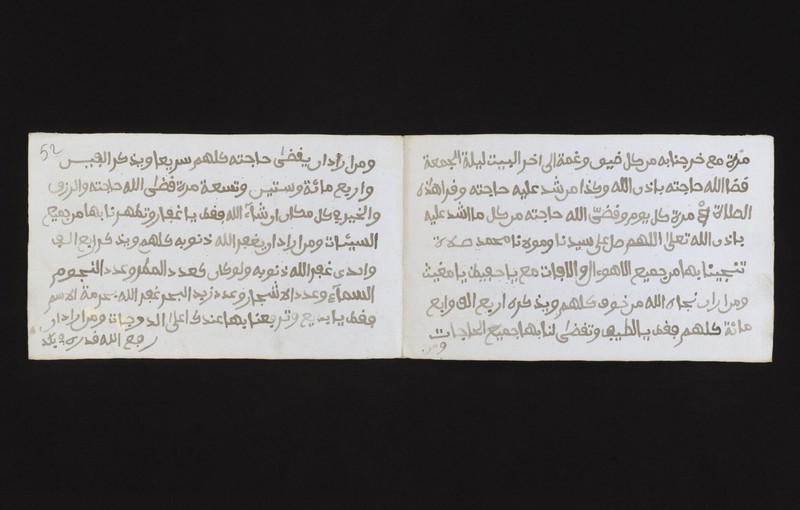 مرة مع خرجنا به من كل ضيق وغمة الى اخر البيت ليلة الجمعة
قضا الله حاجته باذن الله وكذا من شد عليه حاجته وقرا هذه
الصلاة مرة كل يوم وقضى الله حاجته من كل ما اشد عليه
باذن الله تعلى اللهم صل على سيدنا ومولانا محمد صلاة
تنجينا بها من جميع الاهوال والافات مع يا حفيظ يا مغيث
ومن اراد نجاه الله من خوف كلهم ويذكره اربع الف واربع
مائة كلهم فقف يا لطيف وتقضى لنا بها جميع الحاجات
ومن
52
ومن اراد ان يقضى حاجته كلهم سريعا ويذكر
واربع مائة وستين وتسعة مرة قضى الله حاجته والرزق
والخير في كل مكان ان شاء الله فقف يا غفار وتطهرنا بها من جميع
السيئات ومن اراد ان يغفر الله ذنوبه كلهم ويذكر اربع الف
واحدى غفر الله ذنوبه ولو كان كعدد المطر وعدد النجوم
السماء وعدد الاشجار وعدد زبد البحر غفر الله بحرمة الاسم
فقف يا بديع وترفعنا بها عندك اعلى الدرجات ومن اراد ان
رفع الله قدره